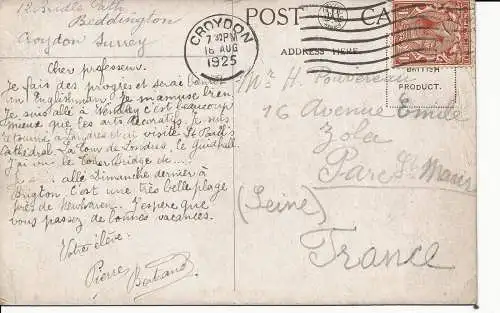 12 Bridle Path
Beddington
Croydon Surrey
Cher professeur.
Je fais des progrès et serai bientôt
un Englishman! Je m'amuse bien.
Je suis allé à Wembley c'est beaucoup
mieux que les arts décoratifs. Je suis
retourné à Londres et ai visité St Paul's
Cathedral - La Tour de Londres, le Guildhall
J'ai vu le Tower Bridge de....
Je .... allé Dimanche dernier à
Brigton. C'est une très belle plage
près de Newhaven. J'espère que
vous passez de bonnes vacances.
Votre élève.
Pierre Bertrand
POST CA
CROYDON
7 30PM
16 AUG
1925
ADDRESS HERE.
BRITISH
PRODUCT.
Mr H. Pouvereau
16 Avenue Emile
Zola
Parc St Maur
(Seine)
France